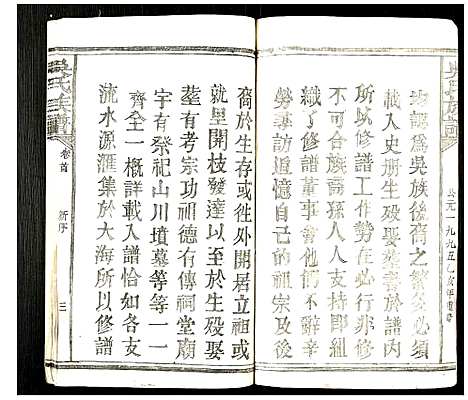 吳氏族譜
公元一九九五乙亥年
均認爲吳族後裔之繁多必須
載入史册生殁娶葬於譜内
所以修譜工作勢在必行非我
不可合族裔孫人人支持即組
織了修譜董事會他們不辭辛
勞尋訪追憶自己的祖宗及後
裔於生存或往外開居立祖或
就里開枝發達以至於生殁娶
塟有考宗功祖德有傳祠堂廟
宇有祭祀山川墳墓等等一一
齊全一概詳載入譜恰如各支
流水源滙集於大海所以修譜
吳氏族譜
卷首
新序
三